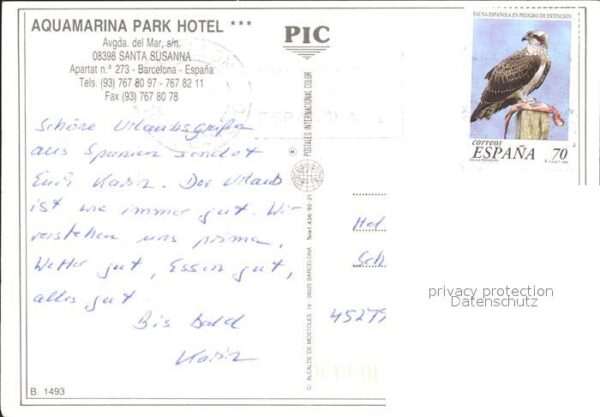 AQUAMARINA PARK HOTEL ***
Avgda. del Mar, s/n.
08398 SANTA SUSANNA
Apartat n.º 273 - Barcelona - España
Tels. (93) 767 80 97 - 767 82 11
Fax (93) 767 80 78
PIC
FAUNA ESPAÑOLA EN PELIGRO DE EXTINCIÓN
correos
ESPAÑA 70
Schöne Urlaubsgrüße
aus Spanien sendet
Euch Karin. Der Urlaub
ist wie immer gut. Wir
verstehen uns prima,
Wetter gut, Essen gut,
alles gut.
Bis bald
Karin
POSTALES INTERNACIONAL COLOR
C/. ALCALDE DE MOSTOLES, 19 - 08025 BARCELONA
Hel
Sch
45279
privacy protection
Datenschutz
B. 1493